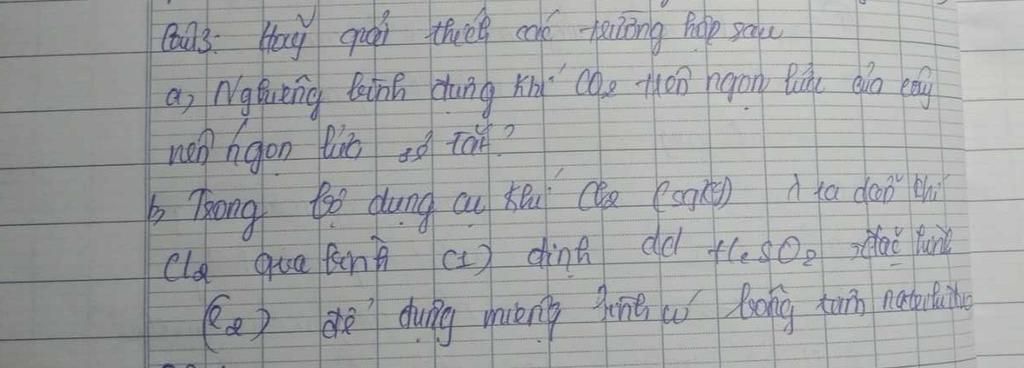 Câu3: Hãy giải thích các trường hợp sau
a, Nghiêng bình đựng khí CO2 trên ngọn lửa của cây
nến ngọn lửa sẽ tắt?
b, Trong bộ dụng cụ khí Cl2 (sgk) ta dẫn khí
Cl2 qua bình (1) đựng dd H2SO2 đặc bình
(2) để đựng miệng bình có bông tẩm